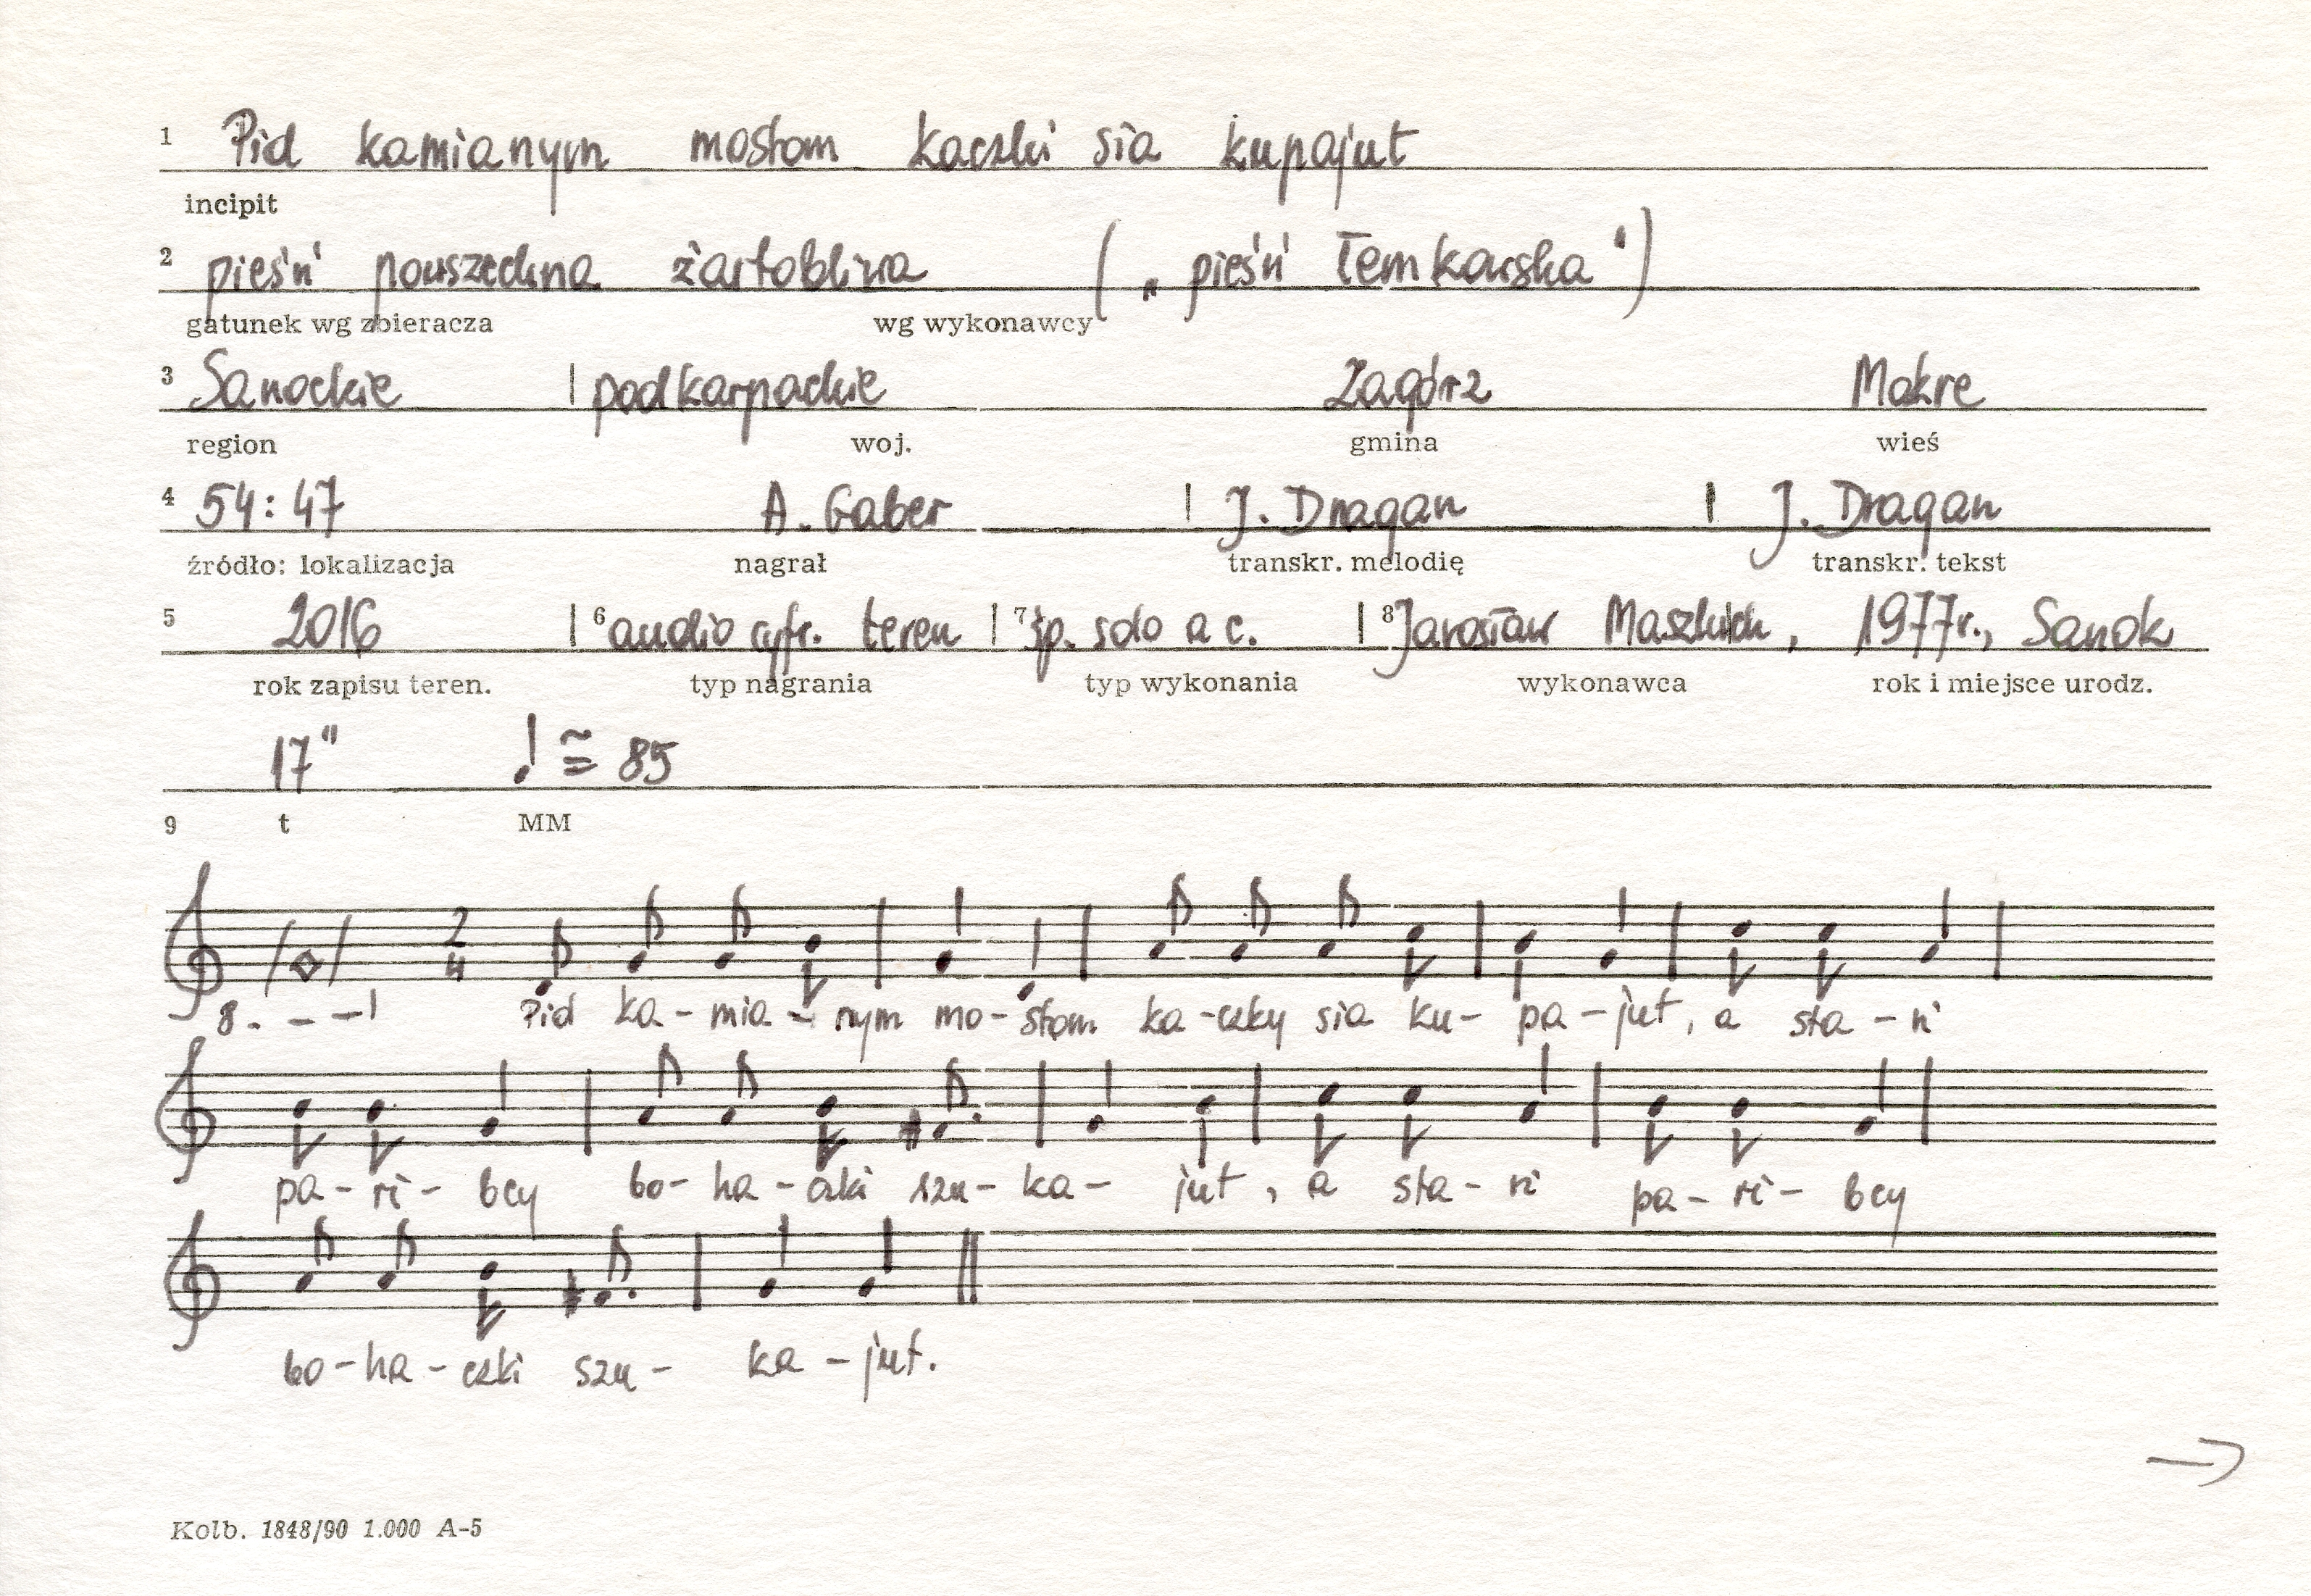 1 Pid kamianym mostom kaczki sia kupajut
incipit
2 pieśń powszechna żartobliwa („pieśń łemkowska")
gatunek wg zbieracza wg wykonawcy
3 Sanockie | podkarpackie Zagórz Mokre
region woj. gmina wieś
4 54:47 A. Gaber | J. Dragan | J. Dragan
źródło: lokalizacja nagrał transkr. melodię transkr. tekst
5 2016 | 6 audio cyfr. teren | 7 śp. solo a c. | 8 Jarosław 1977r., Sanok
rok zapisu teren. typ nagrania typ wykonania wykonawca rok i miejsce urodz.
17" ♩ ≅ 85
9 t MM
2
4
8. - - -|
Pid ka - mia - nym mo - stom ka - czky sia ku - pa - jut, a sta - ri
pa - ri - bcy bo - ha - czki szu - ka - jut, a sta - ri pa - ri - bcy
bo - ha - czki szu - ka - jut.
→
Kolb. 1848/90 1.000 A-5